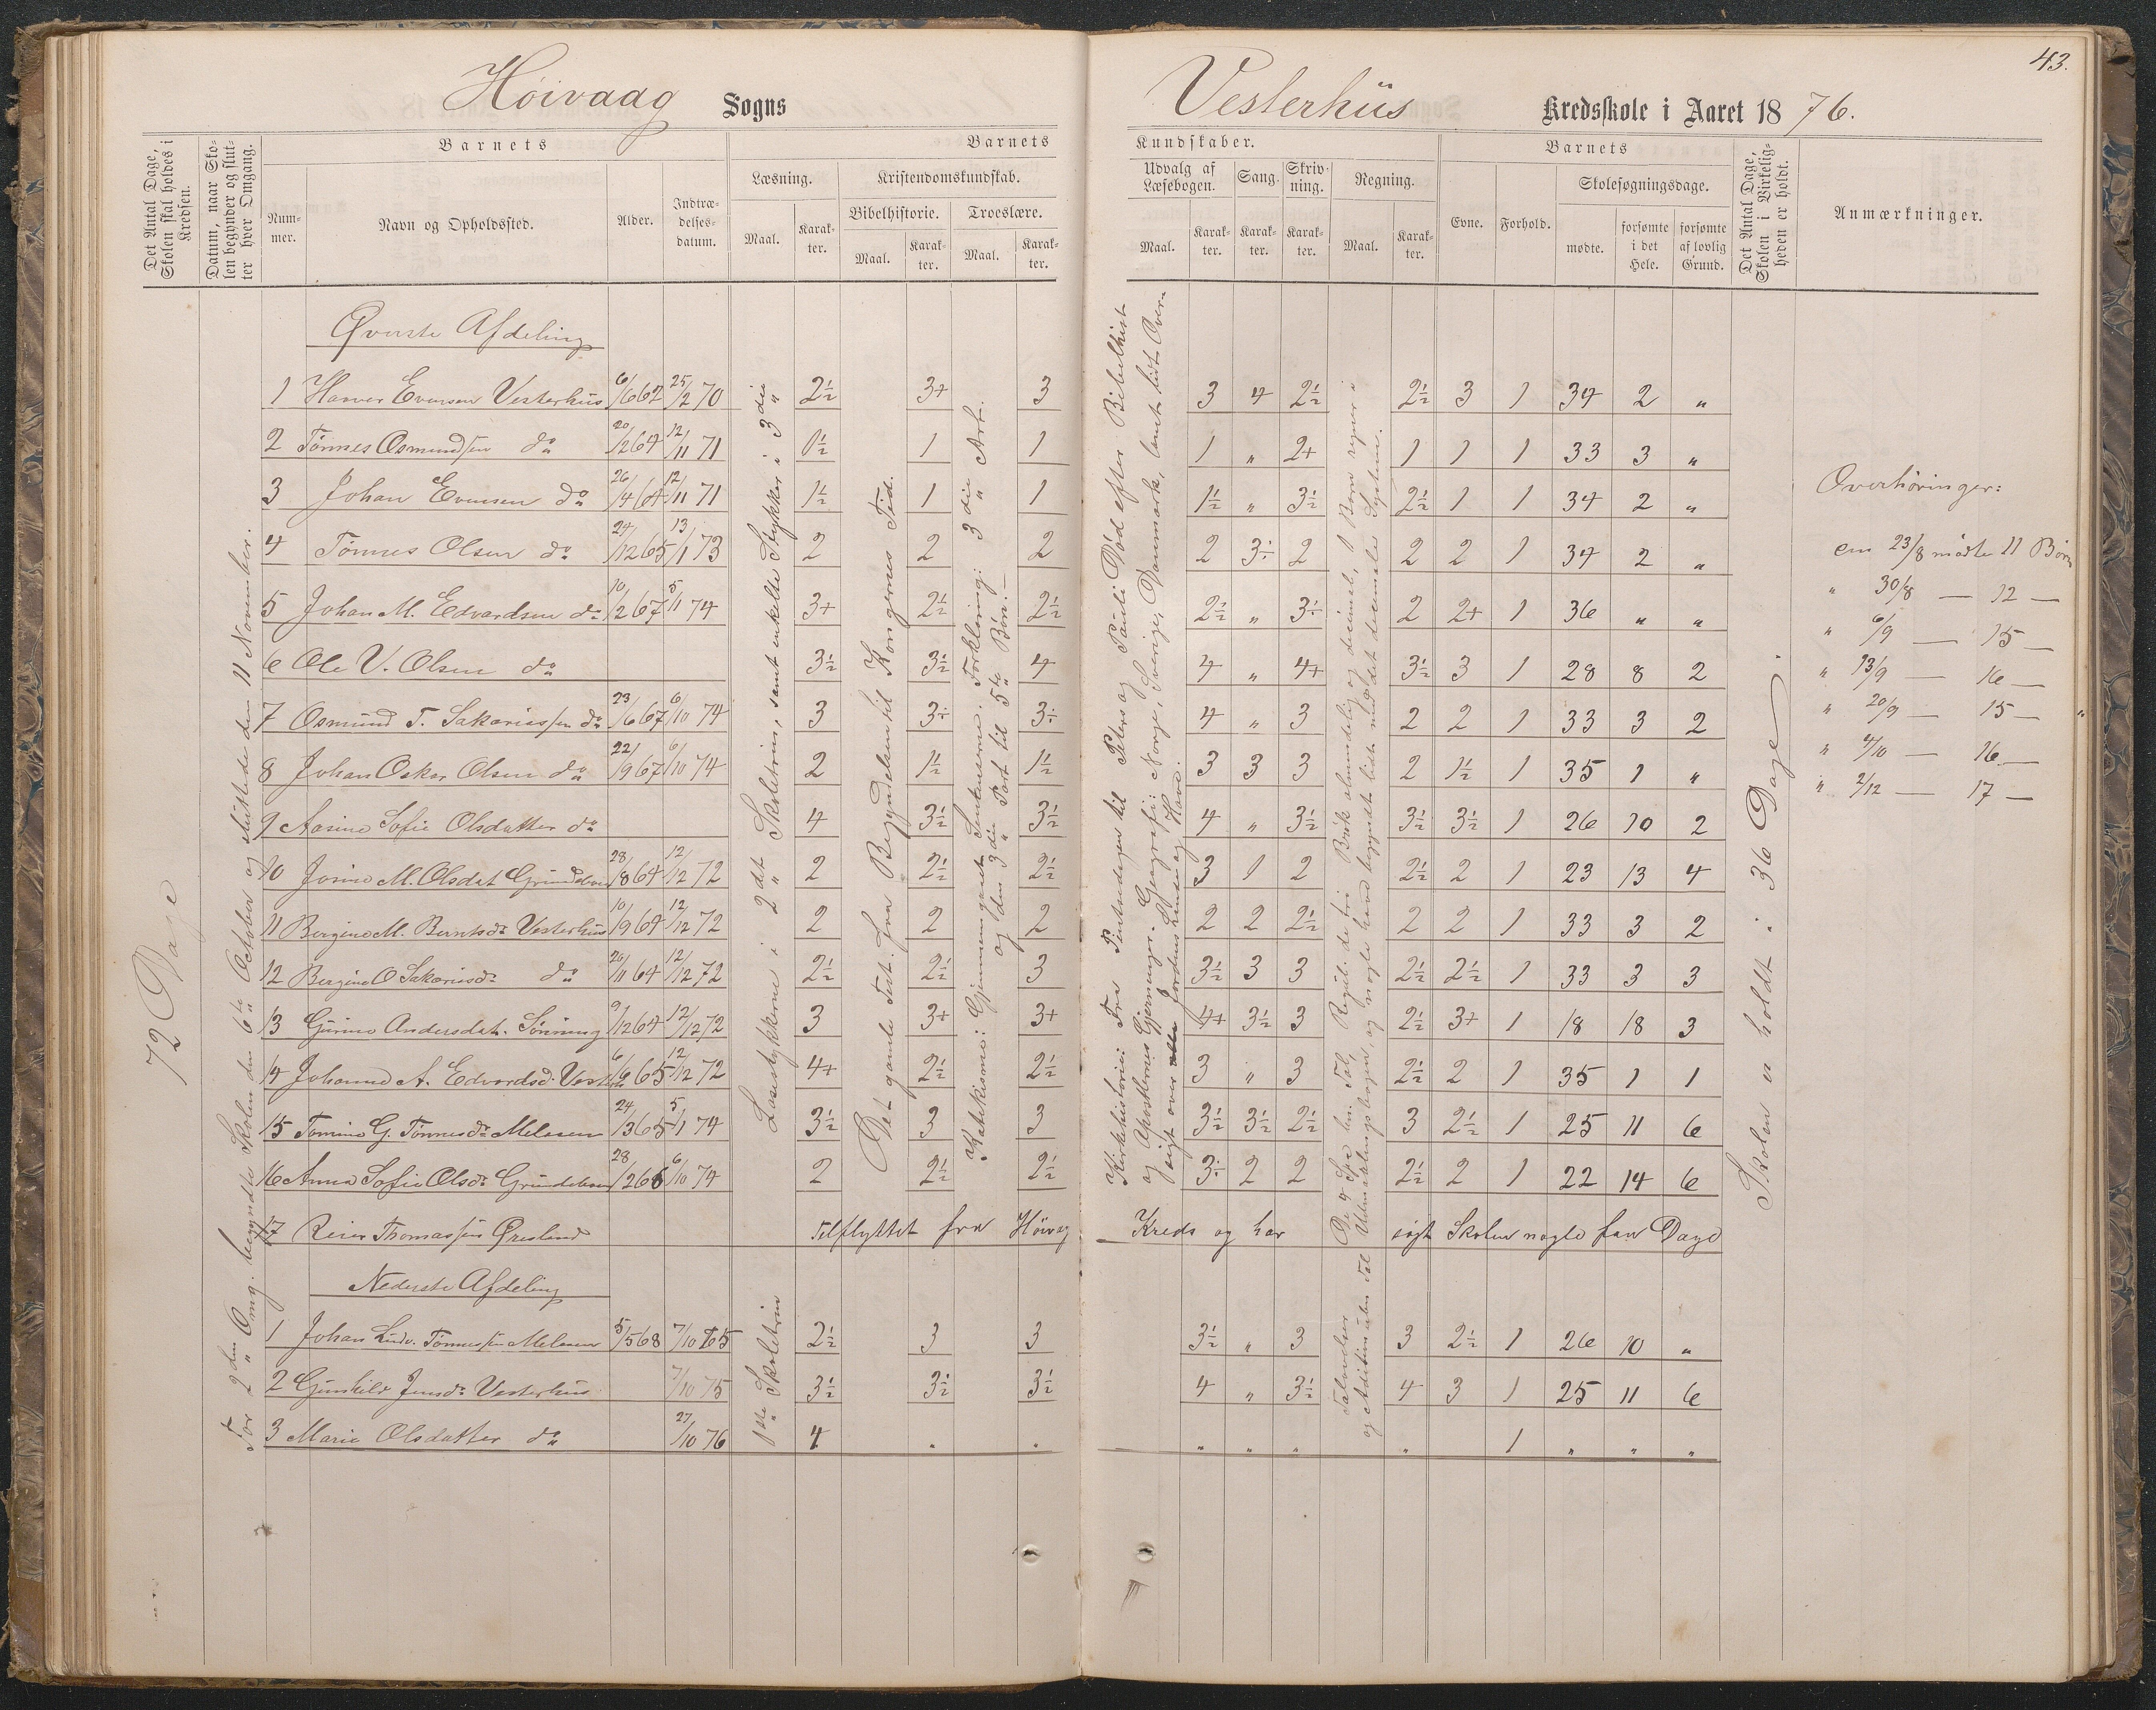 43.
Höivaag Sogns
Vesterhüs Kredsskole i Aaret 1876.
Det Antal Dage, Skolen skal holdes i Kredsen.
Datum, naar Skolen begynder og slutter hver Omgang.
Barnets
Nummer.
Navn og Opholdssted.
Alder.
Indtrædelsesdatum.
Barnets
Læsning.
Maal.
Karakter.
Kristendomskundskab.
Bibelhistorie.
Maal.
Karakter.
Troeslære.
Maal.
Karakter.
Kundskaber.
Udvalg af Læsebogen.
Maal.
Karakter.
Sang.
Karakter.
Skrivning.
Karakter.
Regning.
Maal.
Karakter.
Barnets
Evne.
Forhold.
Skolesøgningsdage.
mødte.
forsømte i det Hele.
forsømte af lovlig Grund.
Det Antal Dage, Skolen i Virkeligheden er holdt.
Anmærkninger.
72 Dage
For 2den Omg. begyndte Skolen den 6te October og sluttede den 11 November.
Læsestykkerne i 2det Skoletrin, samt enkelte Stykker i 3die
Det gamle Test. fra Begyndelsen til Kongernes Tid.
Katekisme: Gjennemgaaet Forklaring: 3die Art.
og den 3die Part til 5te Børn.
Kirkehistorie: Fra Pintsedagen til Peters og Pauli Død efter Bibelhist
og Apostlernes Gjerninger. Geografi: Norge, Sverige, Danmark, samt lidt Over-
sigt over Jordens Lande og Have.
Skolen er holdt i 36 Dage.
Øverste Afdeling
1 Hanver Evensen Vesterhüs 6/6 62 25/2 70 2½ 3+ 3 3 4 2½ 2½ 3 1 34 2 "
2 Tönnes Osmundsen do 20/12 64 12/11 71 1½ 1 1 1 " 2+ 1 1 1 33 3 "
3 Johan Evensen do 26/4 64 12/11 71 1½ 1 1 1½ " 3½ 2½ 1 1 34 2 "
4 Tönnes Olsen do 24/12 65 13/1 73 2 2 2 2 3÷ 2 2 2 1 34 2 "
5 Johan M. Edvardsen do 10/2 67 5/11 74 3+ 2½ 2½ 2½ " 3÷ 2 2+ 1 36 " "
6 Ole V. Olsen do 3½ 3½ 4 4 " 4+ 3½ 3 1 28 8 2
7 Osmünd T. Sakariassen do 23/6 67 6/10 74 3 3÷ 3÷ 4 " 3 2 2 1 33 3 2
8 Johan Oskar Olsen do 22/9 67 6/10 74 2 1½ 1½ 3 3 3 2 1½ 1 35 1 "
9 Aasine Sofie Olsdatter do 4 3½ 3½ 4 " 3½ 3½ 3½ 1 26 10 2
10 Josine M. Olsdat 28/8 64 12/12 72 2 2½ 2½ 3 1 2 2½ 2 1 23 13 4
11 Bergine M. Berntsdr Vesterhüs 10/9 64 12/12 72 2 2 2 2 2 2½ 2 2 1 33 3 2
12 Bergine O Sakariasdr do 20/11 64 12/12 72 2½ 2½ 3 3½ 3 3 2½ 2½ 1 33 3 3
13 Gurine Andersdat. 9/12 64 12/12 72 3 3+ 3+ 4+ 3½ 3 2½ 3+ 1 18 18 3
14 Johanne A. Edvardsd. Vesterh 6/6 65 12/12 72 4+ 2½ 2½ 3 " 3 2½ 2 1 35 1 1
15 Tomine G. Tønnesdr 24/3 65 5/1 74 3½ 3 3 3½ 3½ 2½ 3 2½ 1 25 11 6
16 Anna Sofie Olsdr 28/2 66 6/10 74 2 2½ 2½ 3÷ 2 2 2½ 2 1 22 14 6
17 Reier Thomassen Øresland Tilflyttet fra Höivag Kreds og har søgt Skolen nogle faa Dage
Nederste Afdeling
1ste Skoletrin
1 Johan Ludv. Tönnessen 5/5 68 7/10 75 2½ 3 3 3½ " 3 3 2½ 1 26 10 "
2 Günhild Jensdr Vesterhüs 7/10 75 3½ 3½ 3½ 4 " 3½ 4 3 1 25 11 6
3 Marie Olsdatter do 27/10 76 4 " " " " " " 1 " " "
Overhöringer:
en 23/8 mödte 11 Börn
" 30/8 — 12 —
" 6/9 — 15 —
" 13/9 — 16 —
" 20/9 — 15 —
" 4/10 — 16 —
" 2/12 — 17 —